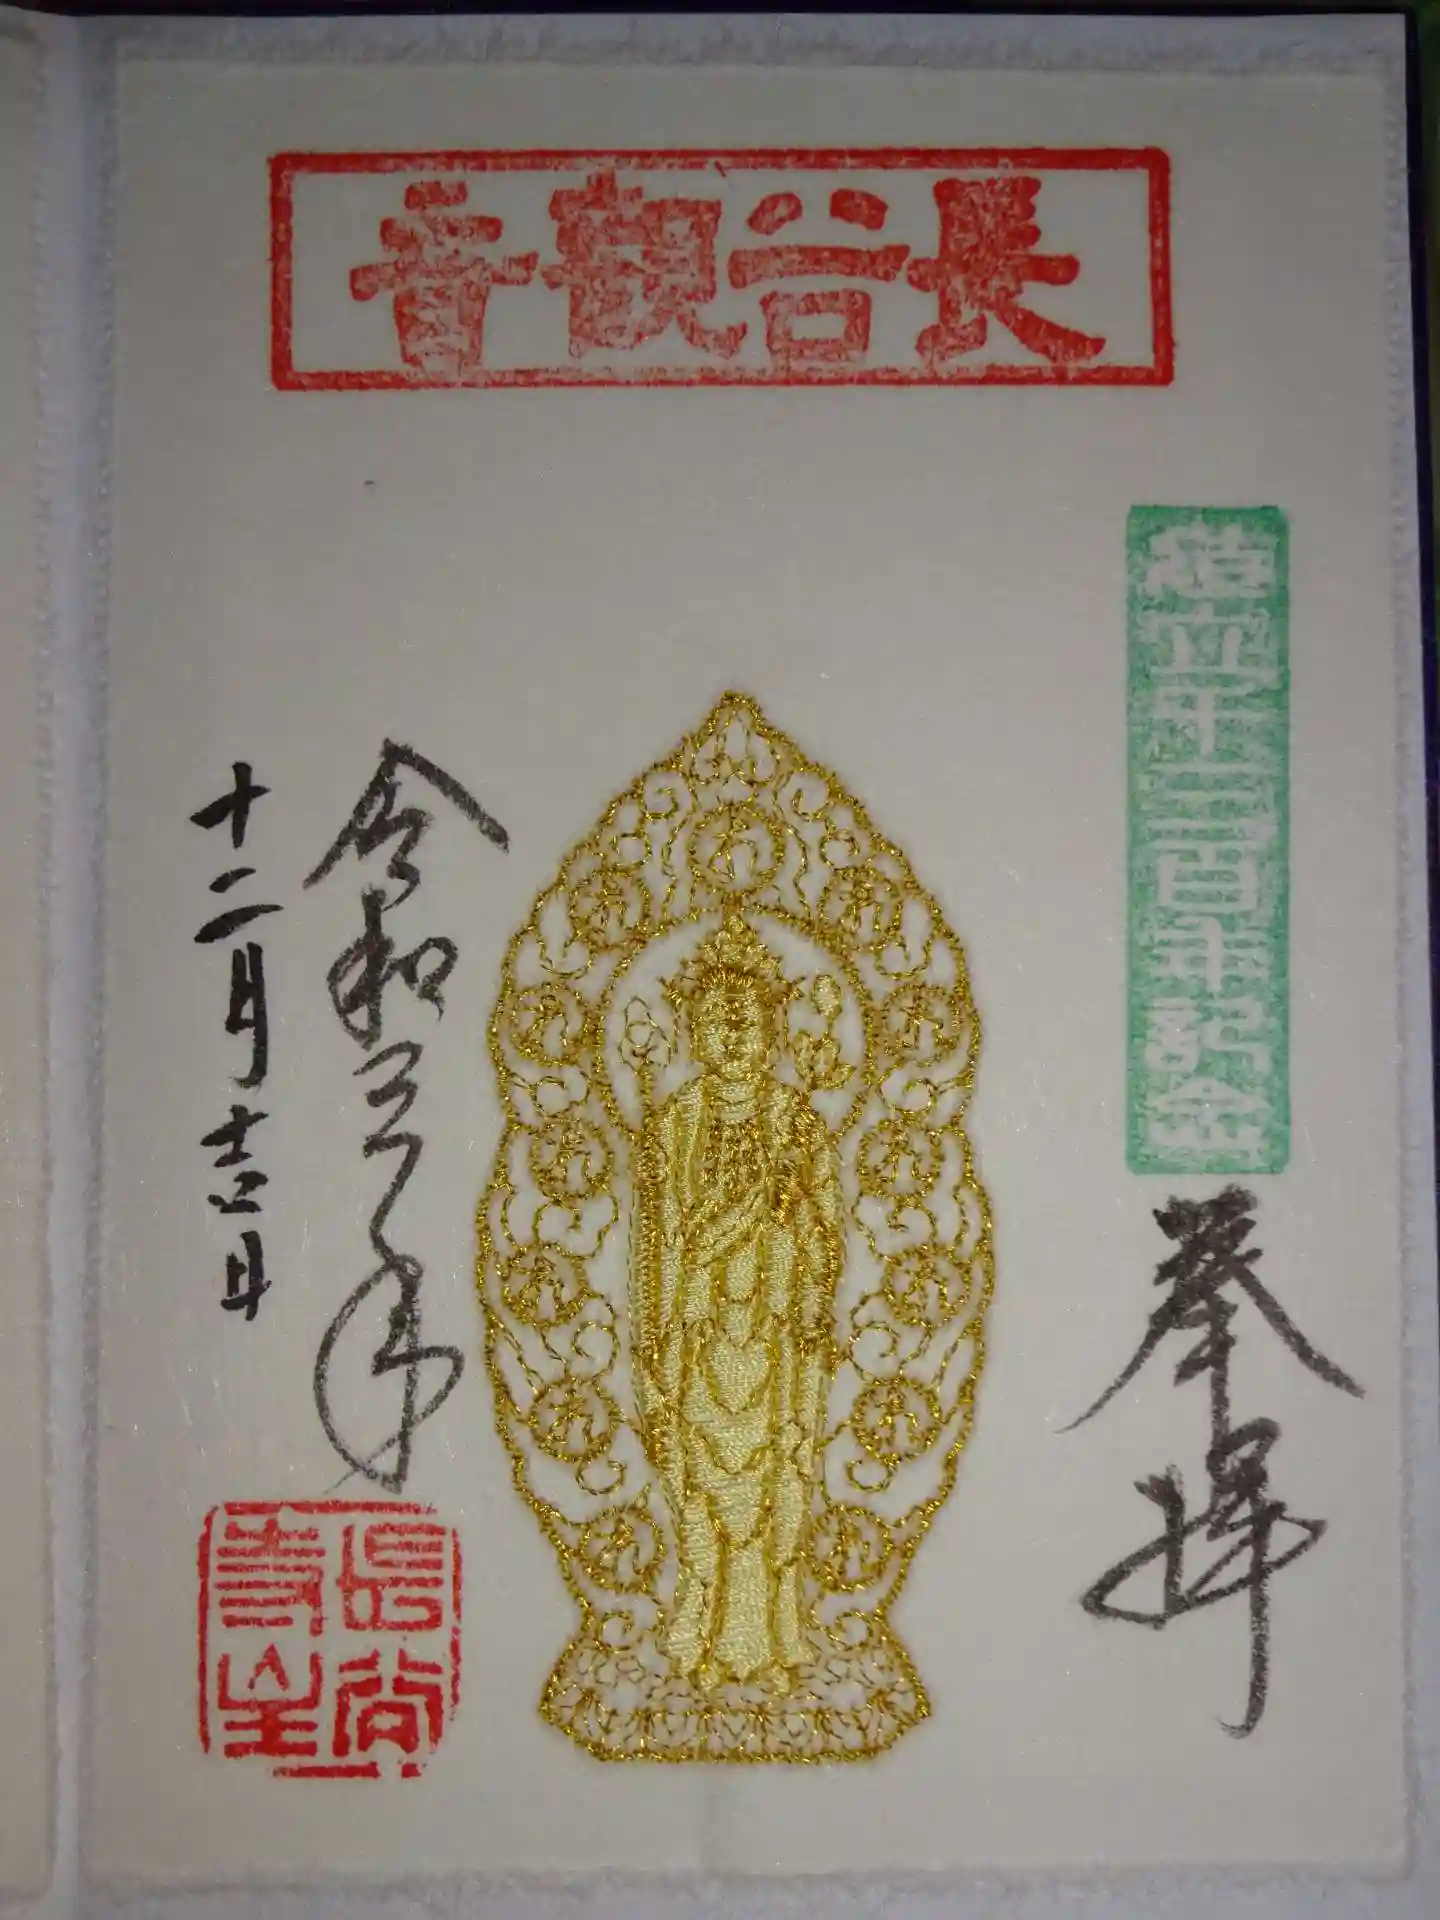 長谷觀音
造立千三百年記念
奉拝
令和三年
十二月吉日
長谷寺